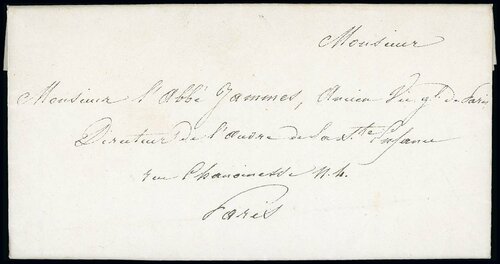 Monsieur
Monsieur l'Abbé Jammes, Ancien Vic. gl. de Paris
Directeur de l'Œuvre de la Ste Enfance
rue Chanoinesse N. 4.
Paris